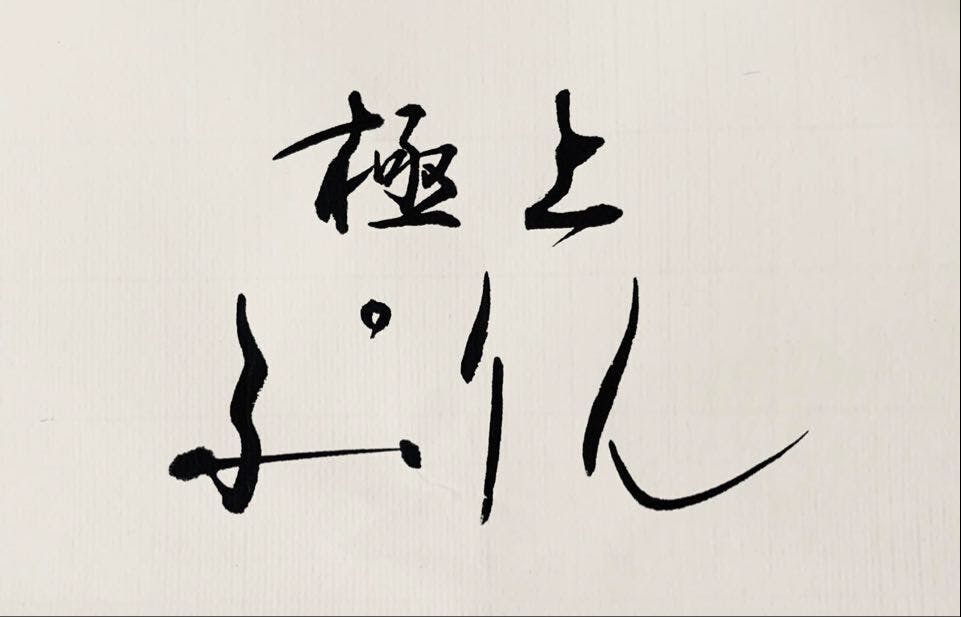 極上
ぷりん